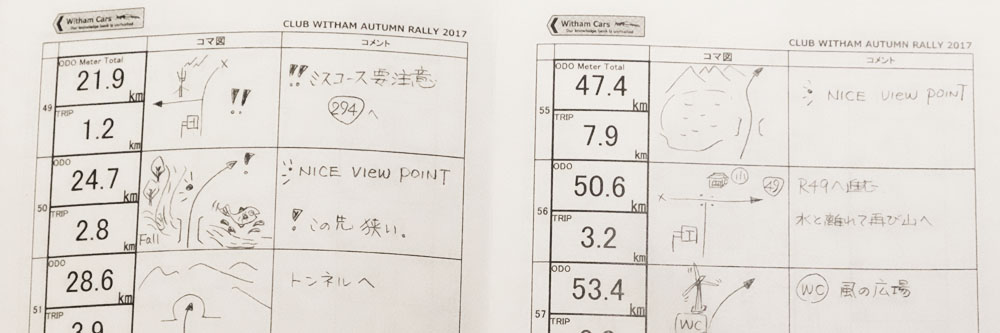 Witham Cars
Our knowledge bank is unrivalled
CLUB WITHAM AUTUMN RALLY 2017
コマ図
コメント
49
ODO Meter Total
21.9
km
TRIP
1.2
km
!!
!!ミスコース要注意
294へ
50
ODO
24.7
km
TRIP
2.8
km
Fall
!
NICE VIEW POINT
!この先狭い.
51
ODO
28.6
km
TRIP
トンネルへ
Witham Cars
Our knowledge bank is unrivalled
CLUB WITHAM AUTUMN RALLY 2017
コマ図
コメント
55
ODO Meter Total
47.4
km
TRIP
7.9
km
NICE VIEW POINT
56
ODO
50.6
km
TRIP
3.2
km
×
49
R49へ進む
水と離れて再び山へ
57
ODO
53.4
km
TRIP
WC
WC 風の広場